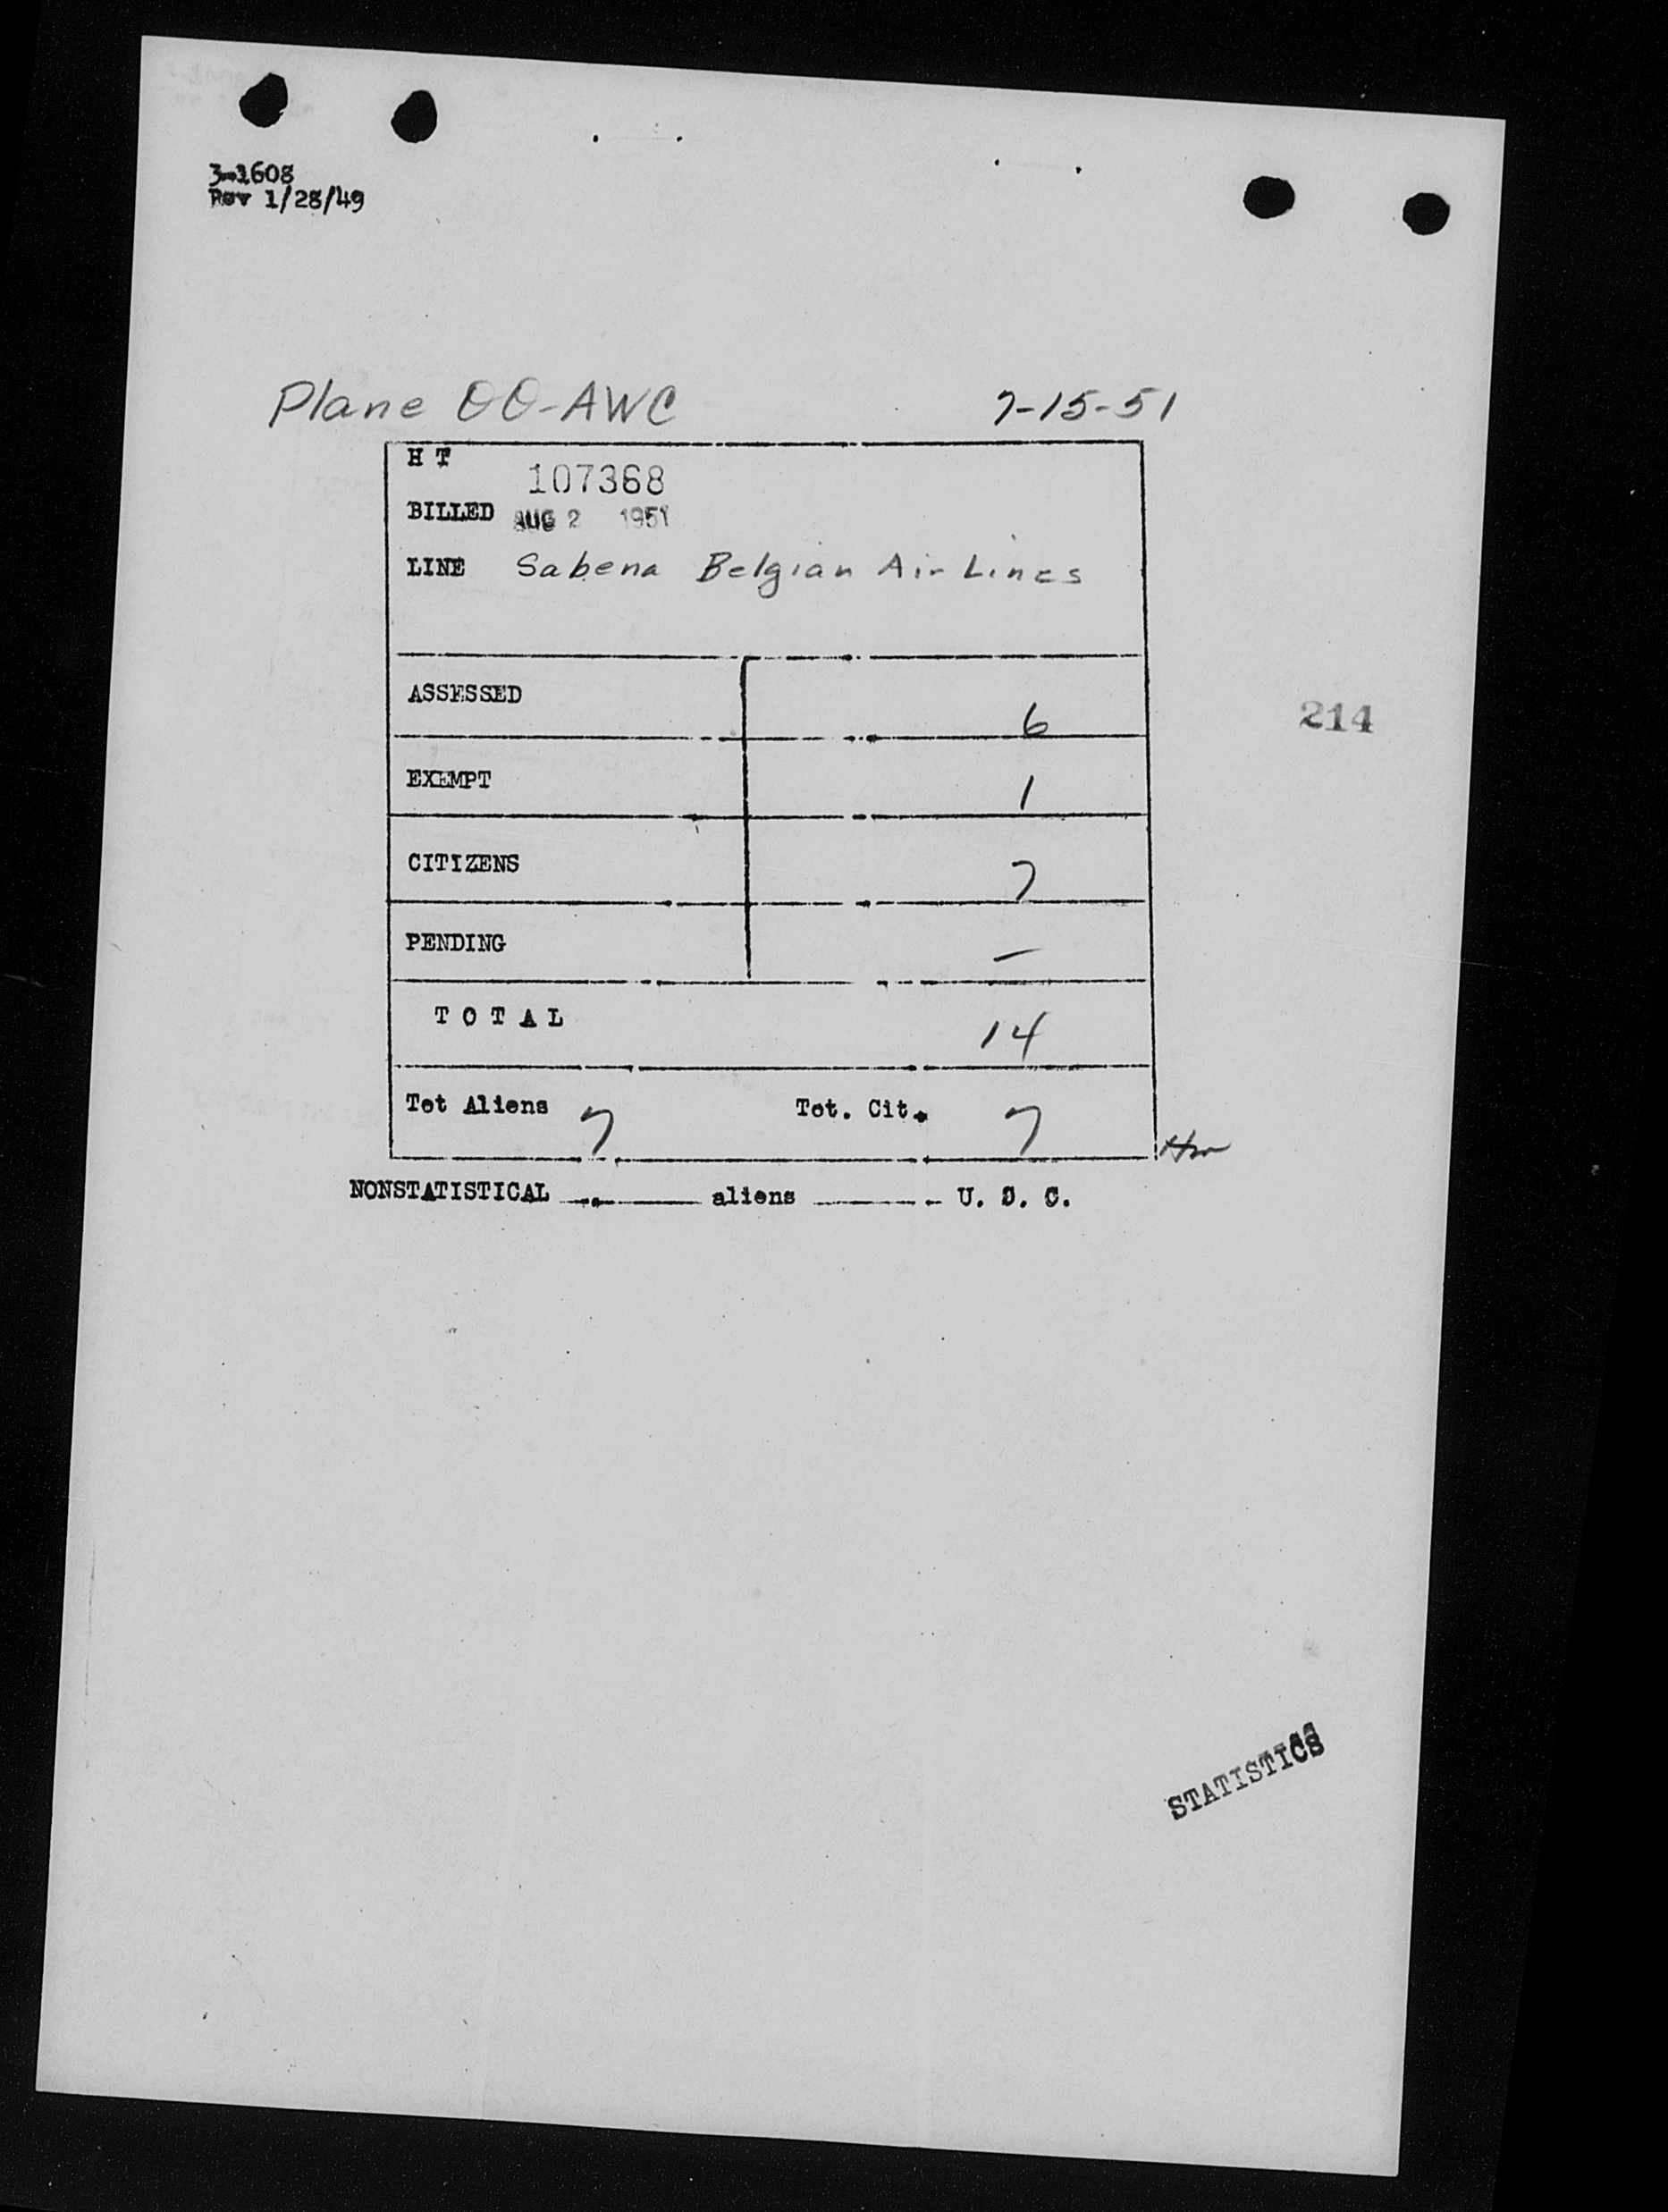 3-1608
Rev 1/28/49
Plane OO-AWC 7-15-51
H T 107368
BILLED AUG 2 1951
LINE Sabena Belgian Air Lines
ASSESSED 6
214
EXEMPT 1
CITIZENS 7
PENDING —
TOTAL 14
Tot Aliens 7 Tot. Cit. 7
NONSTATISTICAL ______ aliens ______ U. S. C.
STATISTICS